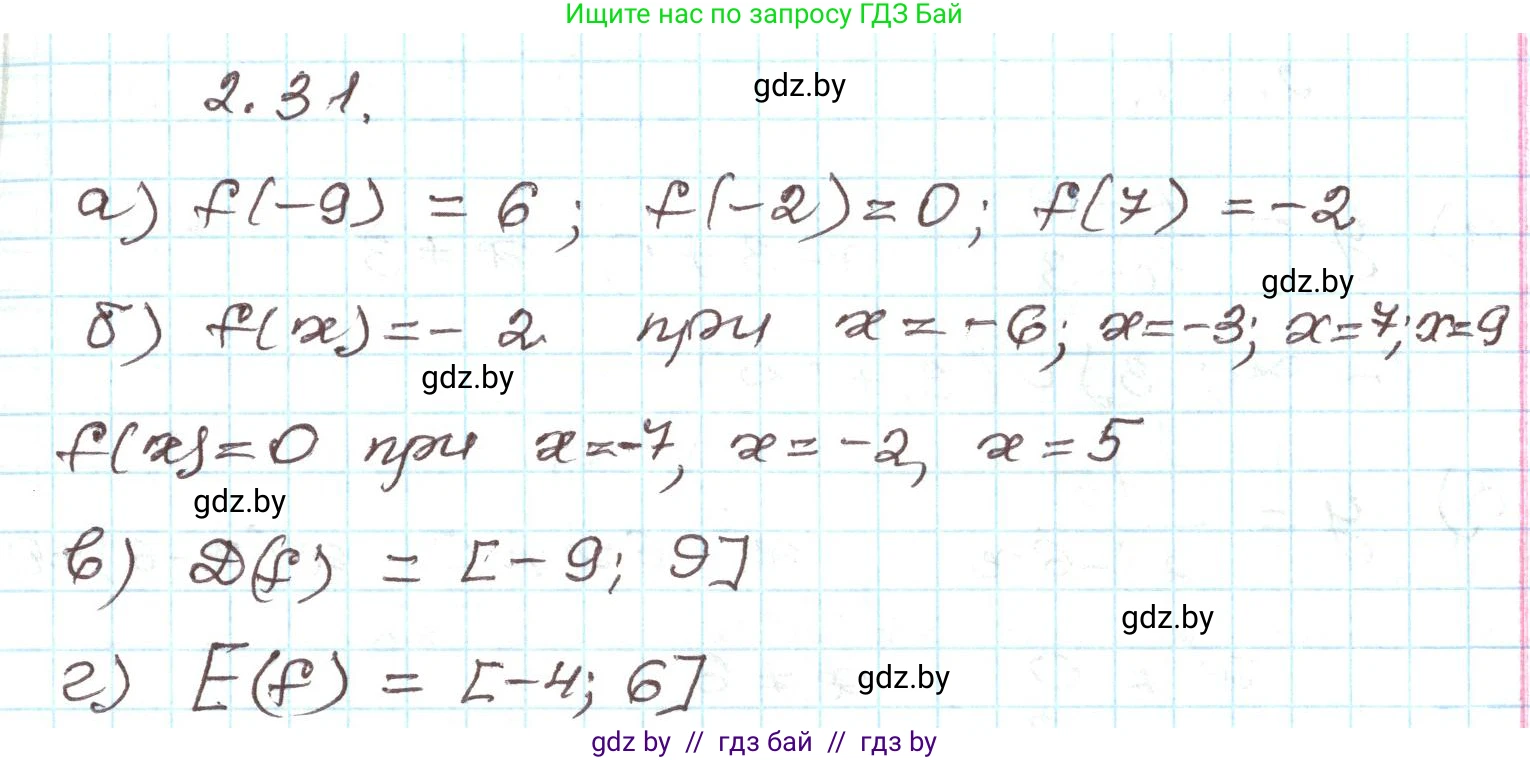 Ищите нас по запросу ГДЗ Бай
2.31.
gdz.by
а) f(-9) = 6; f(-2)=0; f(7) = -2
gdz.by
б) f(x)=-2 при x=-6; x=-3; x=7; x=9
gdz.by
f(x)=0 при x=-7, x=-2, x=5
gdz.by
в) D(f) = [-9; 9]
gdz.by
г) E(f) = [-4; 6]
gdz.by
gdz by // гдз бай // гдз by